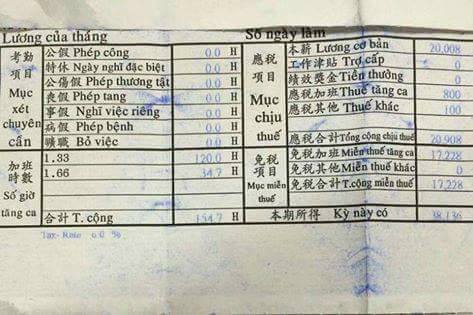 Lương của tháng
Số ngày làm
考勤項目 Mục xét chuyên cần
公假 Phép công 0.0 H
特休 Ngày nghỉ đặc biệt 0.0 H
公傷假 Phép thương tật 0.0 H
喪假 Phép tang 0.0 H
事假 Nghỉ việc riêng 0.0 H
病假 Phép bệnh 0.0 H
曠職 Bỏ việc 0.0 H
加班時數 Số giờ tăng ca
1.33 120.0 H
1.66 34.7 H
合計 T. cộng 154.7 H
Tax-Rate 6.0 %
應稅項目 Mục chịu thuế
本薪 Lương cơ bản 20,008
工作津貼 Trợ cấp 0
績效獎金 Tiền thưởng 0
應稅加班 Thuế tăng ca 800
應稅其他 Thuế khác 100
應稅合計 Tổng cộng chịu thuế 20,908
免稅項目 Mục miễn thuế
免稅加班 Miễn thuế tăng ca 17,228
免稅其他 Miễn thuế khác 0
免稅合計 T.cộng miễn thuế 17,228
本期所得 Kỳ này có 38,136